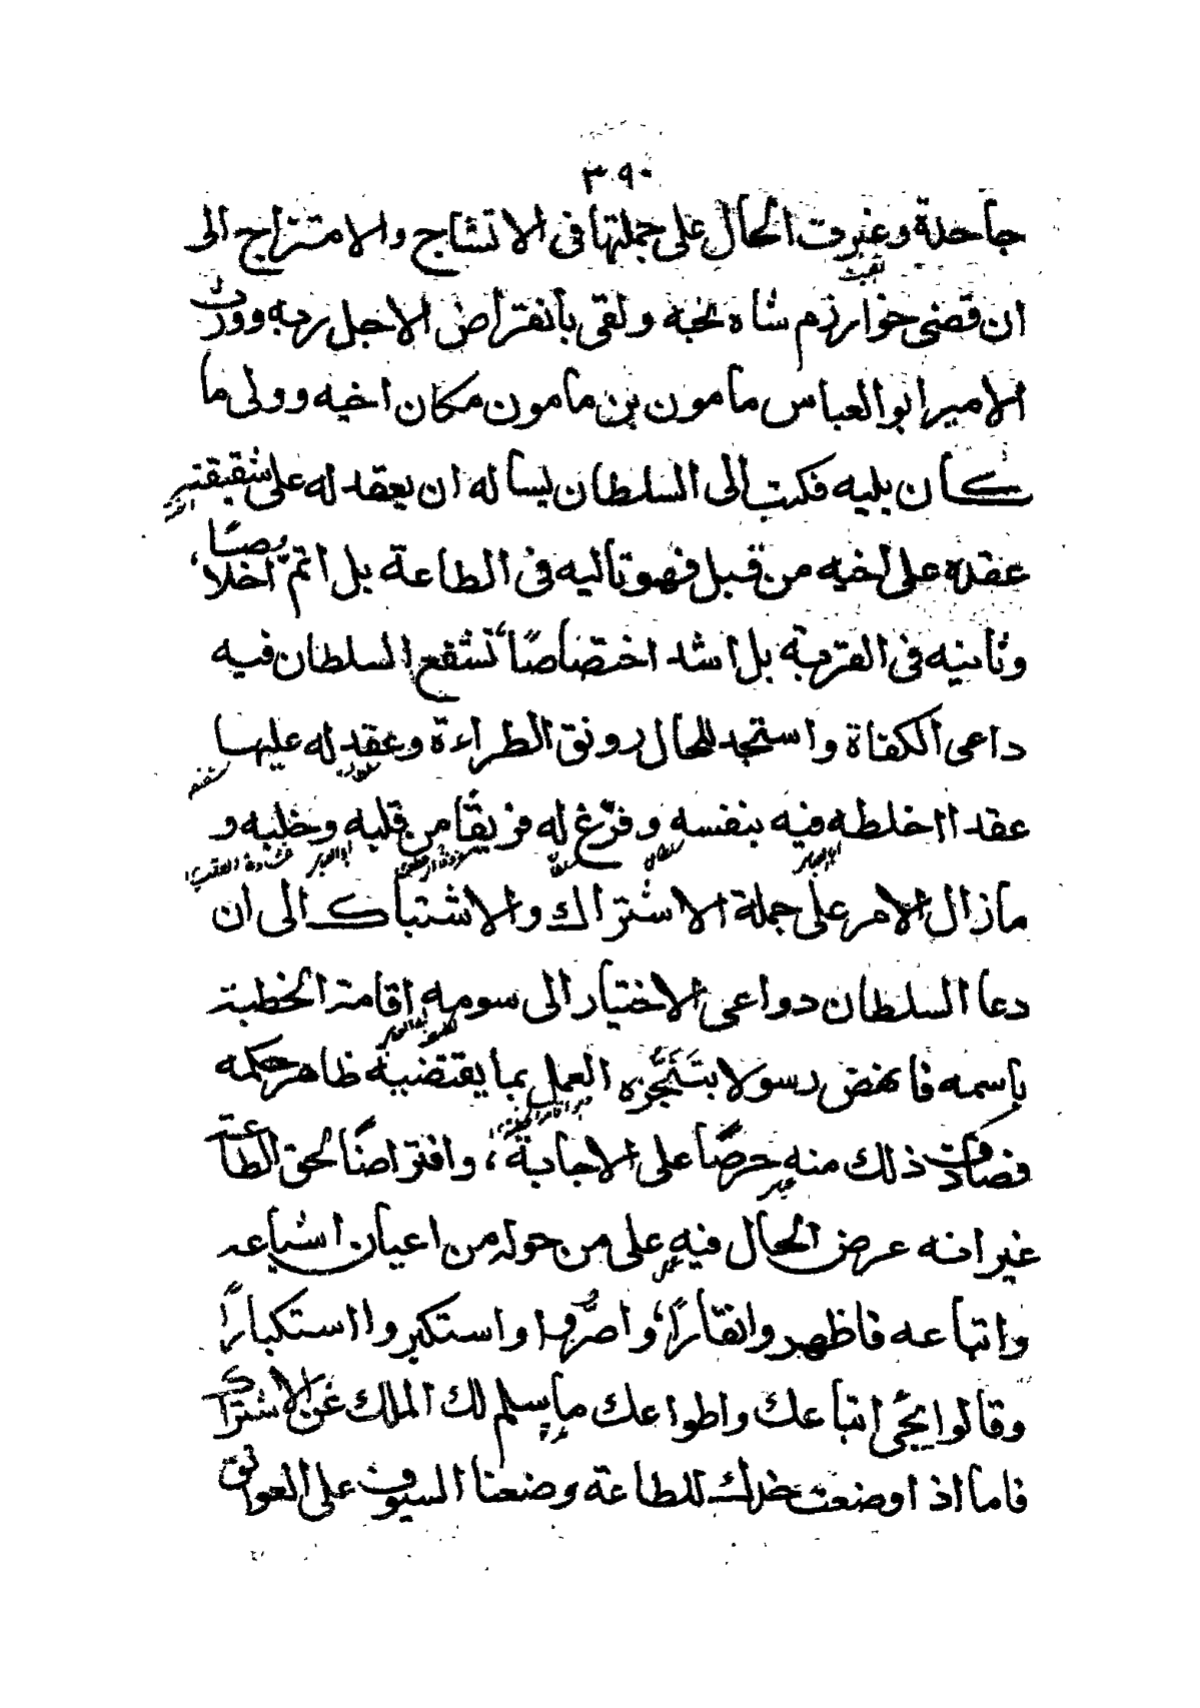 ٣٩٠
جاحدة وغبرت الحال على جملتها فى الاتشاج والامتزاج الى
ان قضى خوارزم شاه نحبه ولقى بانقراض الاجل ربه وورث
الامير ابو العباس مامون بن مامون مكان اخيه وولى ما
كان يليه فكتب الى السلطان يساله ان يعقد له على شقيقته
عقده على اخيه من قبل فهو تاليه فى الطاعة بل اتمّ اخلاصًا
وثانيه فى القربة بل اشد اختصاصًا تشفع السلطان فيه
داعى الكفاة واستجد للحال رونق الطراءة وعقد له عليها
عقدا اخلطه فيه بنفسه وفرّغ له فريقًا من قلبه وخلبه و
مازال الامر على جملة الاشتراك والاشتباك الى ان
دعا السلطان دواعى الاختيار الى سومه اقامة الخطبة
باسمه فانهض رسولا بتَنَجُّزه العمل بما يقتضيه ظاهر حكمه
فصادف ذلك منه حرصًا على الاجابة، وافتراضًا لحق الطاعة
غير انه عرض الحال فيه على من حوله من اعيان اشياعه
واتباعه فاظهروا نفارًا، واصرُّوا واستكبروا استكبارًا
وقالوا نحن اتباعك واطواعك ما سلم لك الملك عن الاشتراك
فاما اذا وضعت خدك للطاعة وضعنا السيوف على العواتق